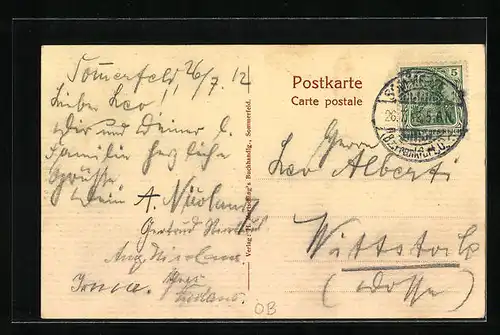 Sommerfeld, 26/7. 12
Lieber Leo!
Dir und Deiner l.
Familie herzliche
Grüsse
Dein A. Nicolaus
Gertrud Nicolaus
Aug. Nicolaus
Irma.
Verlag: Buchhandlg., Sommerfeld.
Postkarte
Carte postale
5
Herrn
Leo Alberti
Wittstock
(Dosse)
OB